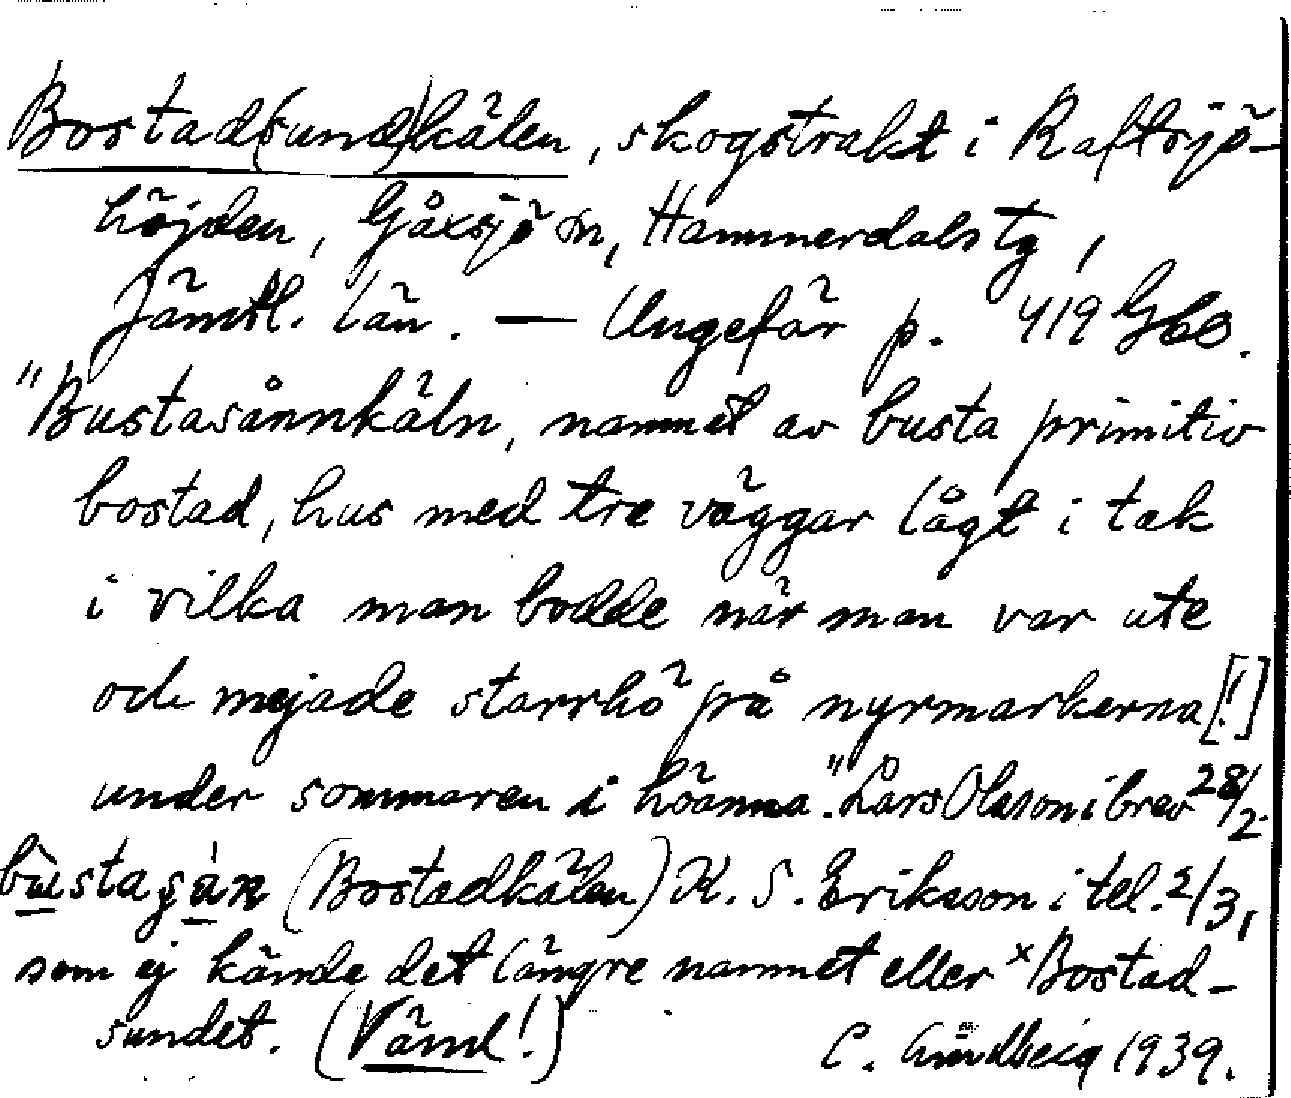 Bostad(sund)kälen, skogstrakt i Raftsjö-
höjden, Gåxsjö sn, Hammerdals tg,
Jämtl. län. — Ungefär p. 419 Gbd.
"Bustasånnkäln, namnet av busta primitiv
bostad, hus med tre väggar lågt i tak
i vilka man bodde när man var ute
och mejade starrhö på nyrmarkerna [!]
under sommaren i höanna." Lars Olsson i brev 28/2.
bùstasàn (Bostadkälen) K. S. Eriksson i tel. 2/3,
som ej kände det längre namnet eller ˣBostad-
sundet. (Väml!)
C. Lindberg 1939.